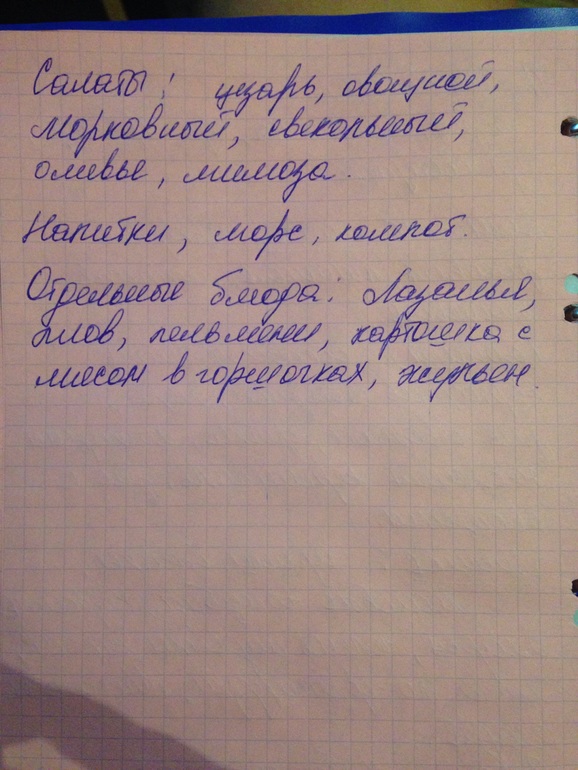 Салаты: цезарь, овощной,
морковный, свекольный,
оливье, мимоза.
Напитки, морс, компот.
Отдельные блюда: Лазанья,
плов, пельмени, картошка с
мясом в горшочках, жульен.